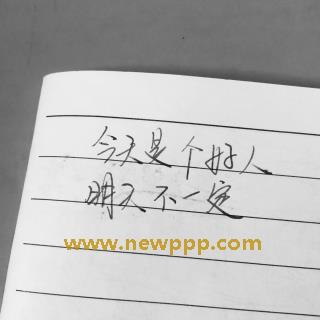 今天是个好人
明天不一定
www.newppp.com